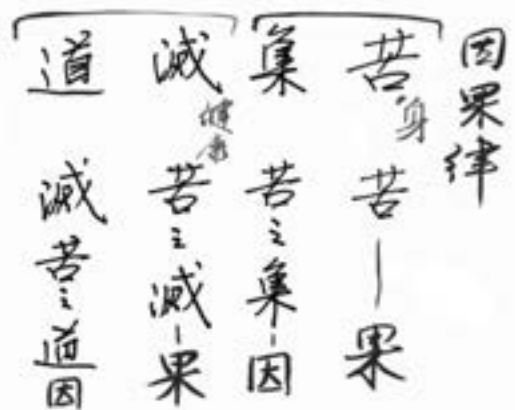 因果律
苦 身 苦—果
集 苦之集-因
滅 健康 苦之滅-果
道 滅苦之道因